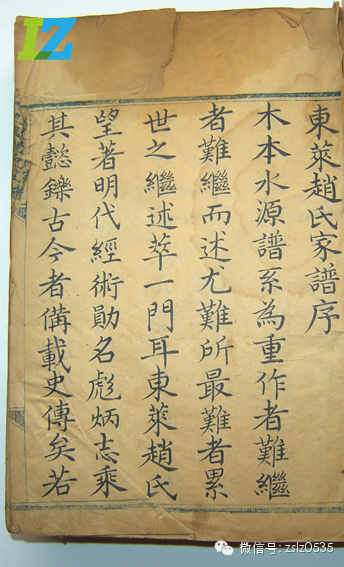 東萊趙氏家譜序
木本水源譜系為重作者難繼
者難繼而述尤難所最難者累
世之繼述萃一門耳東萊趙氏
望著明代經術勛名彪炳志乘
其懿鑠古今者備載史傳矣若
LZ
微信号: zslz0535